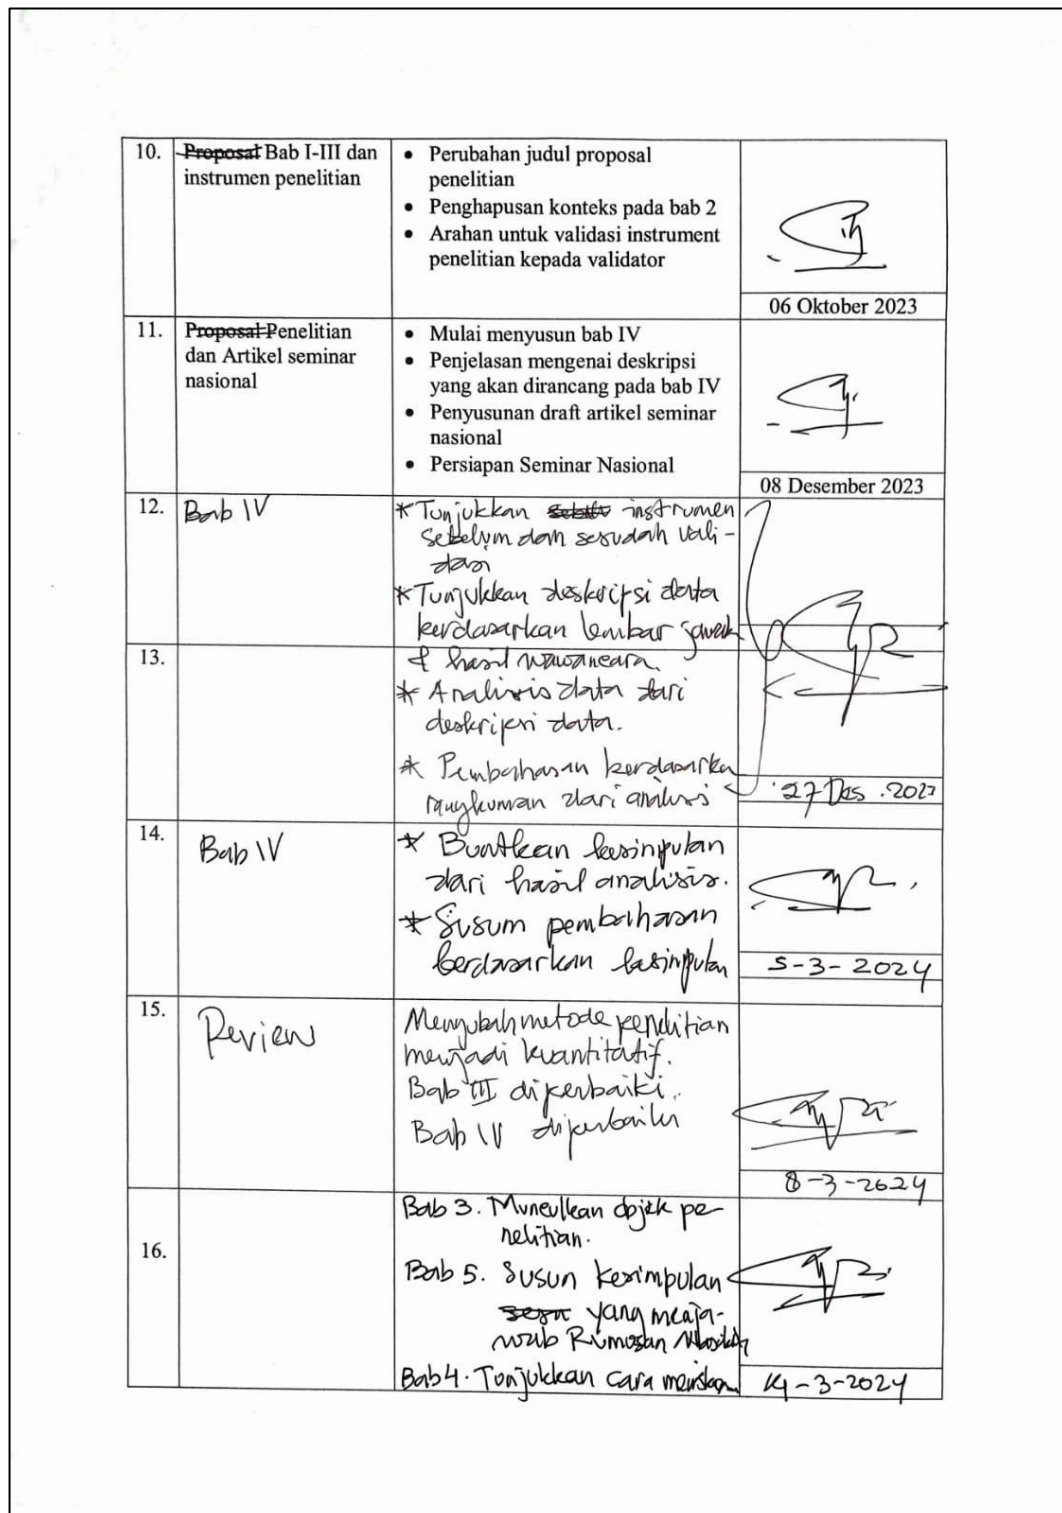 10. Proposal Bab I-III dan
instrumen penelitian
• Perubahan judul proposal
penelitian
• Penghapusan konteks pada bab 2
• Arahan untuk validasi instrument
penelitian kepada validator
06 Oktober 2023
11. Proposal Penelitian
dan Artikel seminar
nasional
• Mulai menyusun bab IV
• Penjelasan mengenai deskripsi
yang akan dirancang pada bab IV
• Penyusunan draft artikel seminar
nasional
• Persiapan Seminar Nasional
08 Desember 2023
12. Bab IV
* Tunjukkan instrumen
sebelum dan sesudah vali-
dasi
* Tunjukkan deskripsi data
berdasarkan lembar jawab
13.
& hasil wawancara.
* Analisis data dari
deskripsi data.
* Pembahasan berdasarkan
rangkuman dari analisis
27 Des. 2023
14. Bab IV
* Buatkan kesimpulan
dari hasil analisis.
* Susun pembahasan
berdasarkan kesimpulan
5-3-2024
15. Review
Mengubah metode penelitian
menjadi kuantitatif.
Bab III diperbaiki.
Bab IV diperbaiki
8-3-2024
16.
Bab 3. Munculkan objek pe-
nelitian.
Bab 5. Susun kesimpulan
yang menja-
wab Rumusan Masalah
Bab 4. Tunjukkan cara
14-3-2024